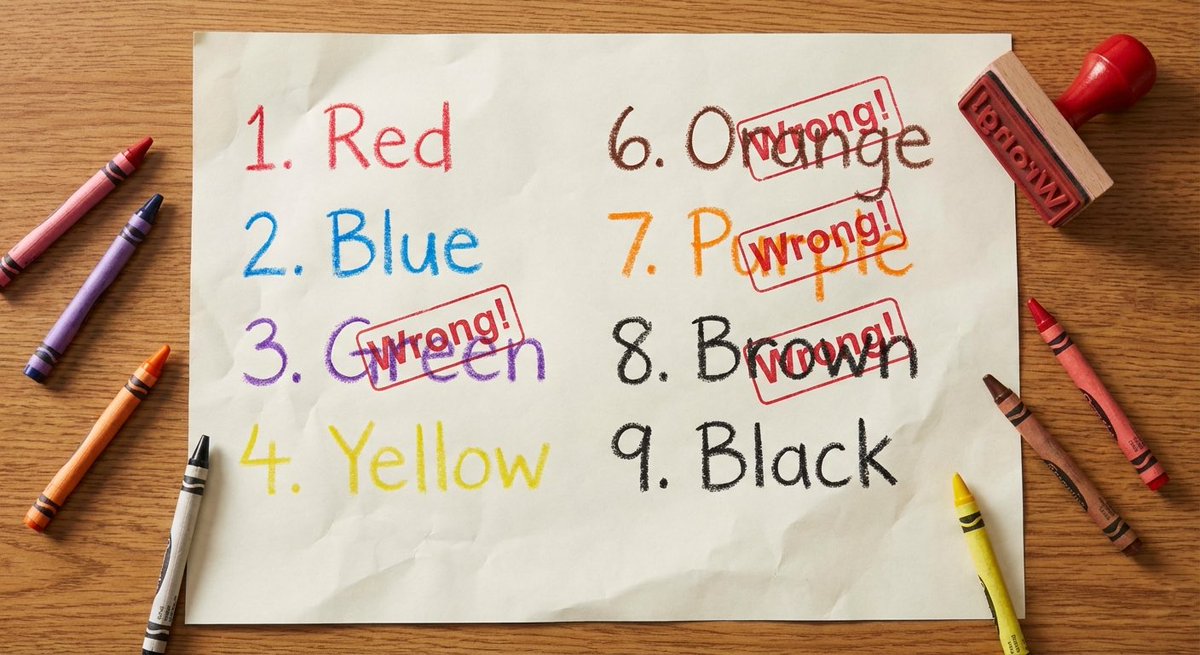 1. Red
2. Blue
3. Green
Wrong!
4. Yellow
6. Orange
Wrong!
7. Purple
Wrong!
8. Brown
Wrong!
9. Black